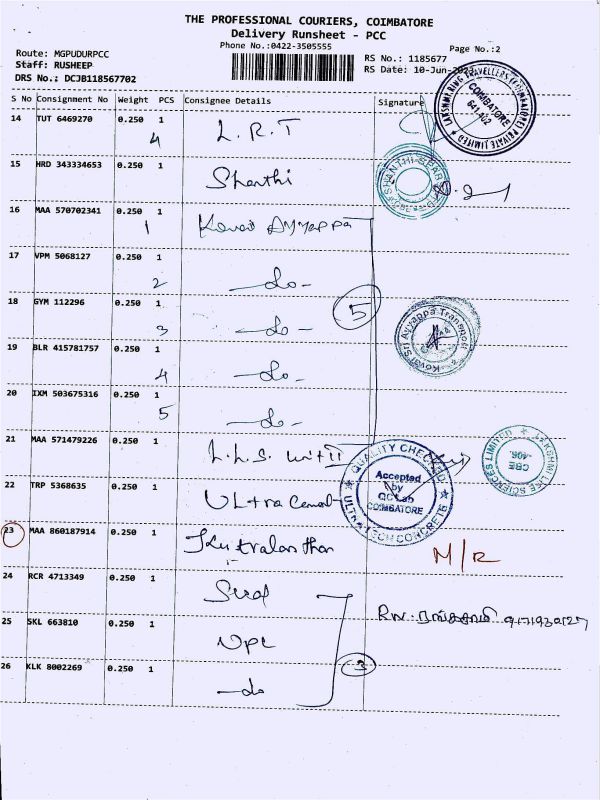 THE PROFESSIONAL COURIERS, COIMBATORE
Delivery Runsheet - PCC
Phone No.:0422-3505555
Page No.:2
Route: MGPUDURPCC
Staff: RUSHEEP
DRS No.: DCJB118567702
RS No.: 1185677
RS Date: 10-Jun-2023
S No Consignment No Weight PCS Consignee Details Signature
14 TUT 6469270 0.250 1 L.R.T
4
15 HRD 343334653 0.250 1 Shanthi
16 MAA 570702341 0.250 1 Kovai Ayyappa
1
17 VPM 5068127 0.250 1 -do-
2
18 GYM 112296 0.250 1 -do-
3
5
19 BLR 415781757 0.250 1 -do-
4
20 IXM 503675316 0.250 1 -do-
5
21 MAA 571479226 0.250 1 L.L.S. unit II
22 TRP 5368635 0.250 1 Ultra
23 MAA 860187914 0.250 1
M/R
24 RCR 4713349 0.250 1
25 SKL 663810 0.250 1
26 KLK 8002269 0.250 1 -do
3
LAKSHMIRING TRAVELLERS (COIMBATORE) PRIVATE LIMITED
COIMBATORE
641 402
Kovai Sri Ayyappa Transport
QUALITY CHECKED
Accepted
by
QC Lab
COIMBATORE
ULTRATECH CONCRETE
LAKSHMI LIFE SCIENCES LIMITED
CBE